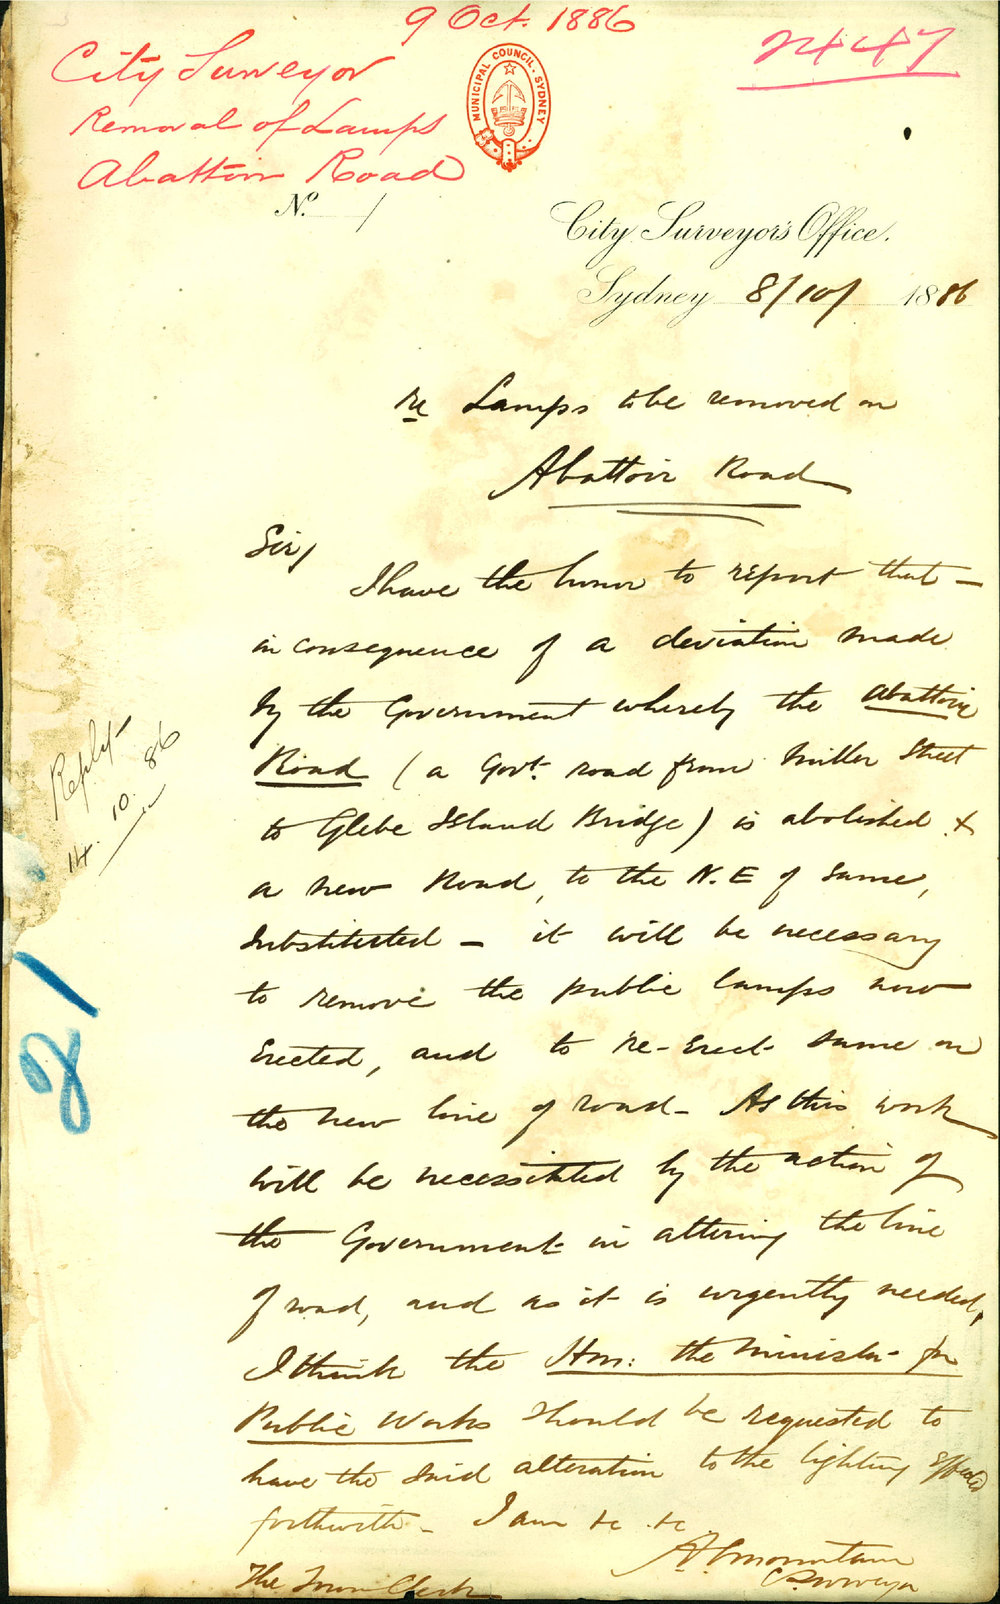 9 Oct. 1886
2447
City Surveyor
Removal of Lamps
Abattoir Road
MUNICIPAL COUNCIL. SYDNEY
No. /
City Surveyor's Office.
Sydney 8/10/ 1886
re Lamps to be removed on
Abattoir Road
Sir/
I have the honor to report that -
in consequence of a deviation made
by the Government whereby the Abattoir
Road (a Govt. road from Miller Street
to Glebe Island Bridge) is abolished &
a new Road, to the N.E of same,
substituted - it will be necessary
to remove the public lamps now
erected, and to re-erect same on
the new line of road - As this work
will be necessitated by the action of
the Government in altering the line
of road, and as it is urgently needed,
I think the Hon: the Minister for
Public Works should be requested to
have the said alteration to the lighting effected
forthwith - I am &c &c
A C Mountain
C Surveyor
The Town Clerk
Reply
14. 10. 86
21